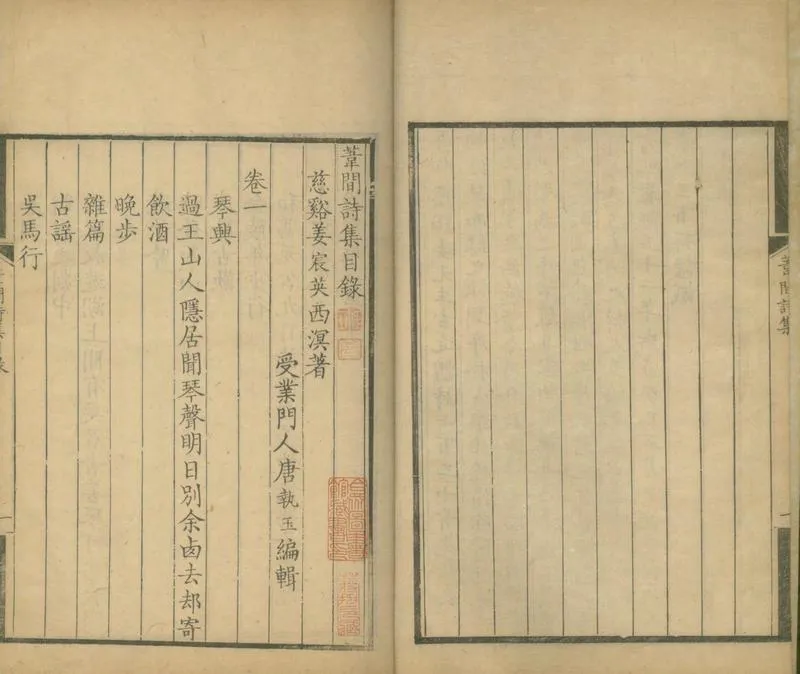 葦間詩集
葦間詩集目錄
慈谿姜宸英西溟著
受業門人唐執玉編輯
卷一
琴興
過王山人隱居聞琴聲明日別余卤去却寄
飲酒
晚步
雜篇
古謡
吳馬行